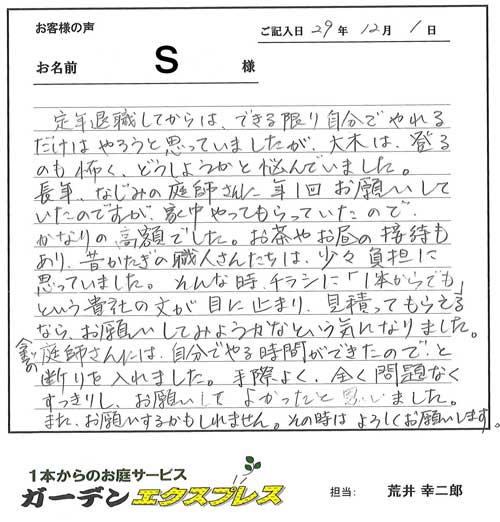 お客様の声
ご記入日 29年 12月 1日
お名前 S 様
定年退職してからは、できる限り自分でやれる
だけはやろうと思っていましたが、大木は、登る
のも怖く、どうしようかと悩んでいました。
長年、なじみの庭師さんに年1回お願いして
いたのですが、家中やってもらっていたので、
かなりの高額でした。お茶やお昼の接待も
あり、昔かたぎの職人さんたちは、少々負担に
思っていました。そんな時、チラシに「1本からでも」
という貴社の文が目に止まり、見積ってもらえる
なら、お願いしてみようかなという気になりました。
庭師さんには、自分でやる時間ができたので、と
断りを入れました。手際よく、全く問題なく
すっきりし、お願いしてよかったと思いました。
また、お願いするかもしれません。その時はよろしくお願いします。
1本からのお庭サービス
ガーデンエクスプレス
担当: 荒井 幸二郎